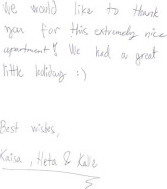 We would like to thank
you for this extremely nice
apartment! We had a great
little holiday :)
Best wishes,
Kaisa, Heta & Kalle